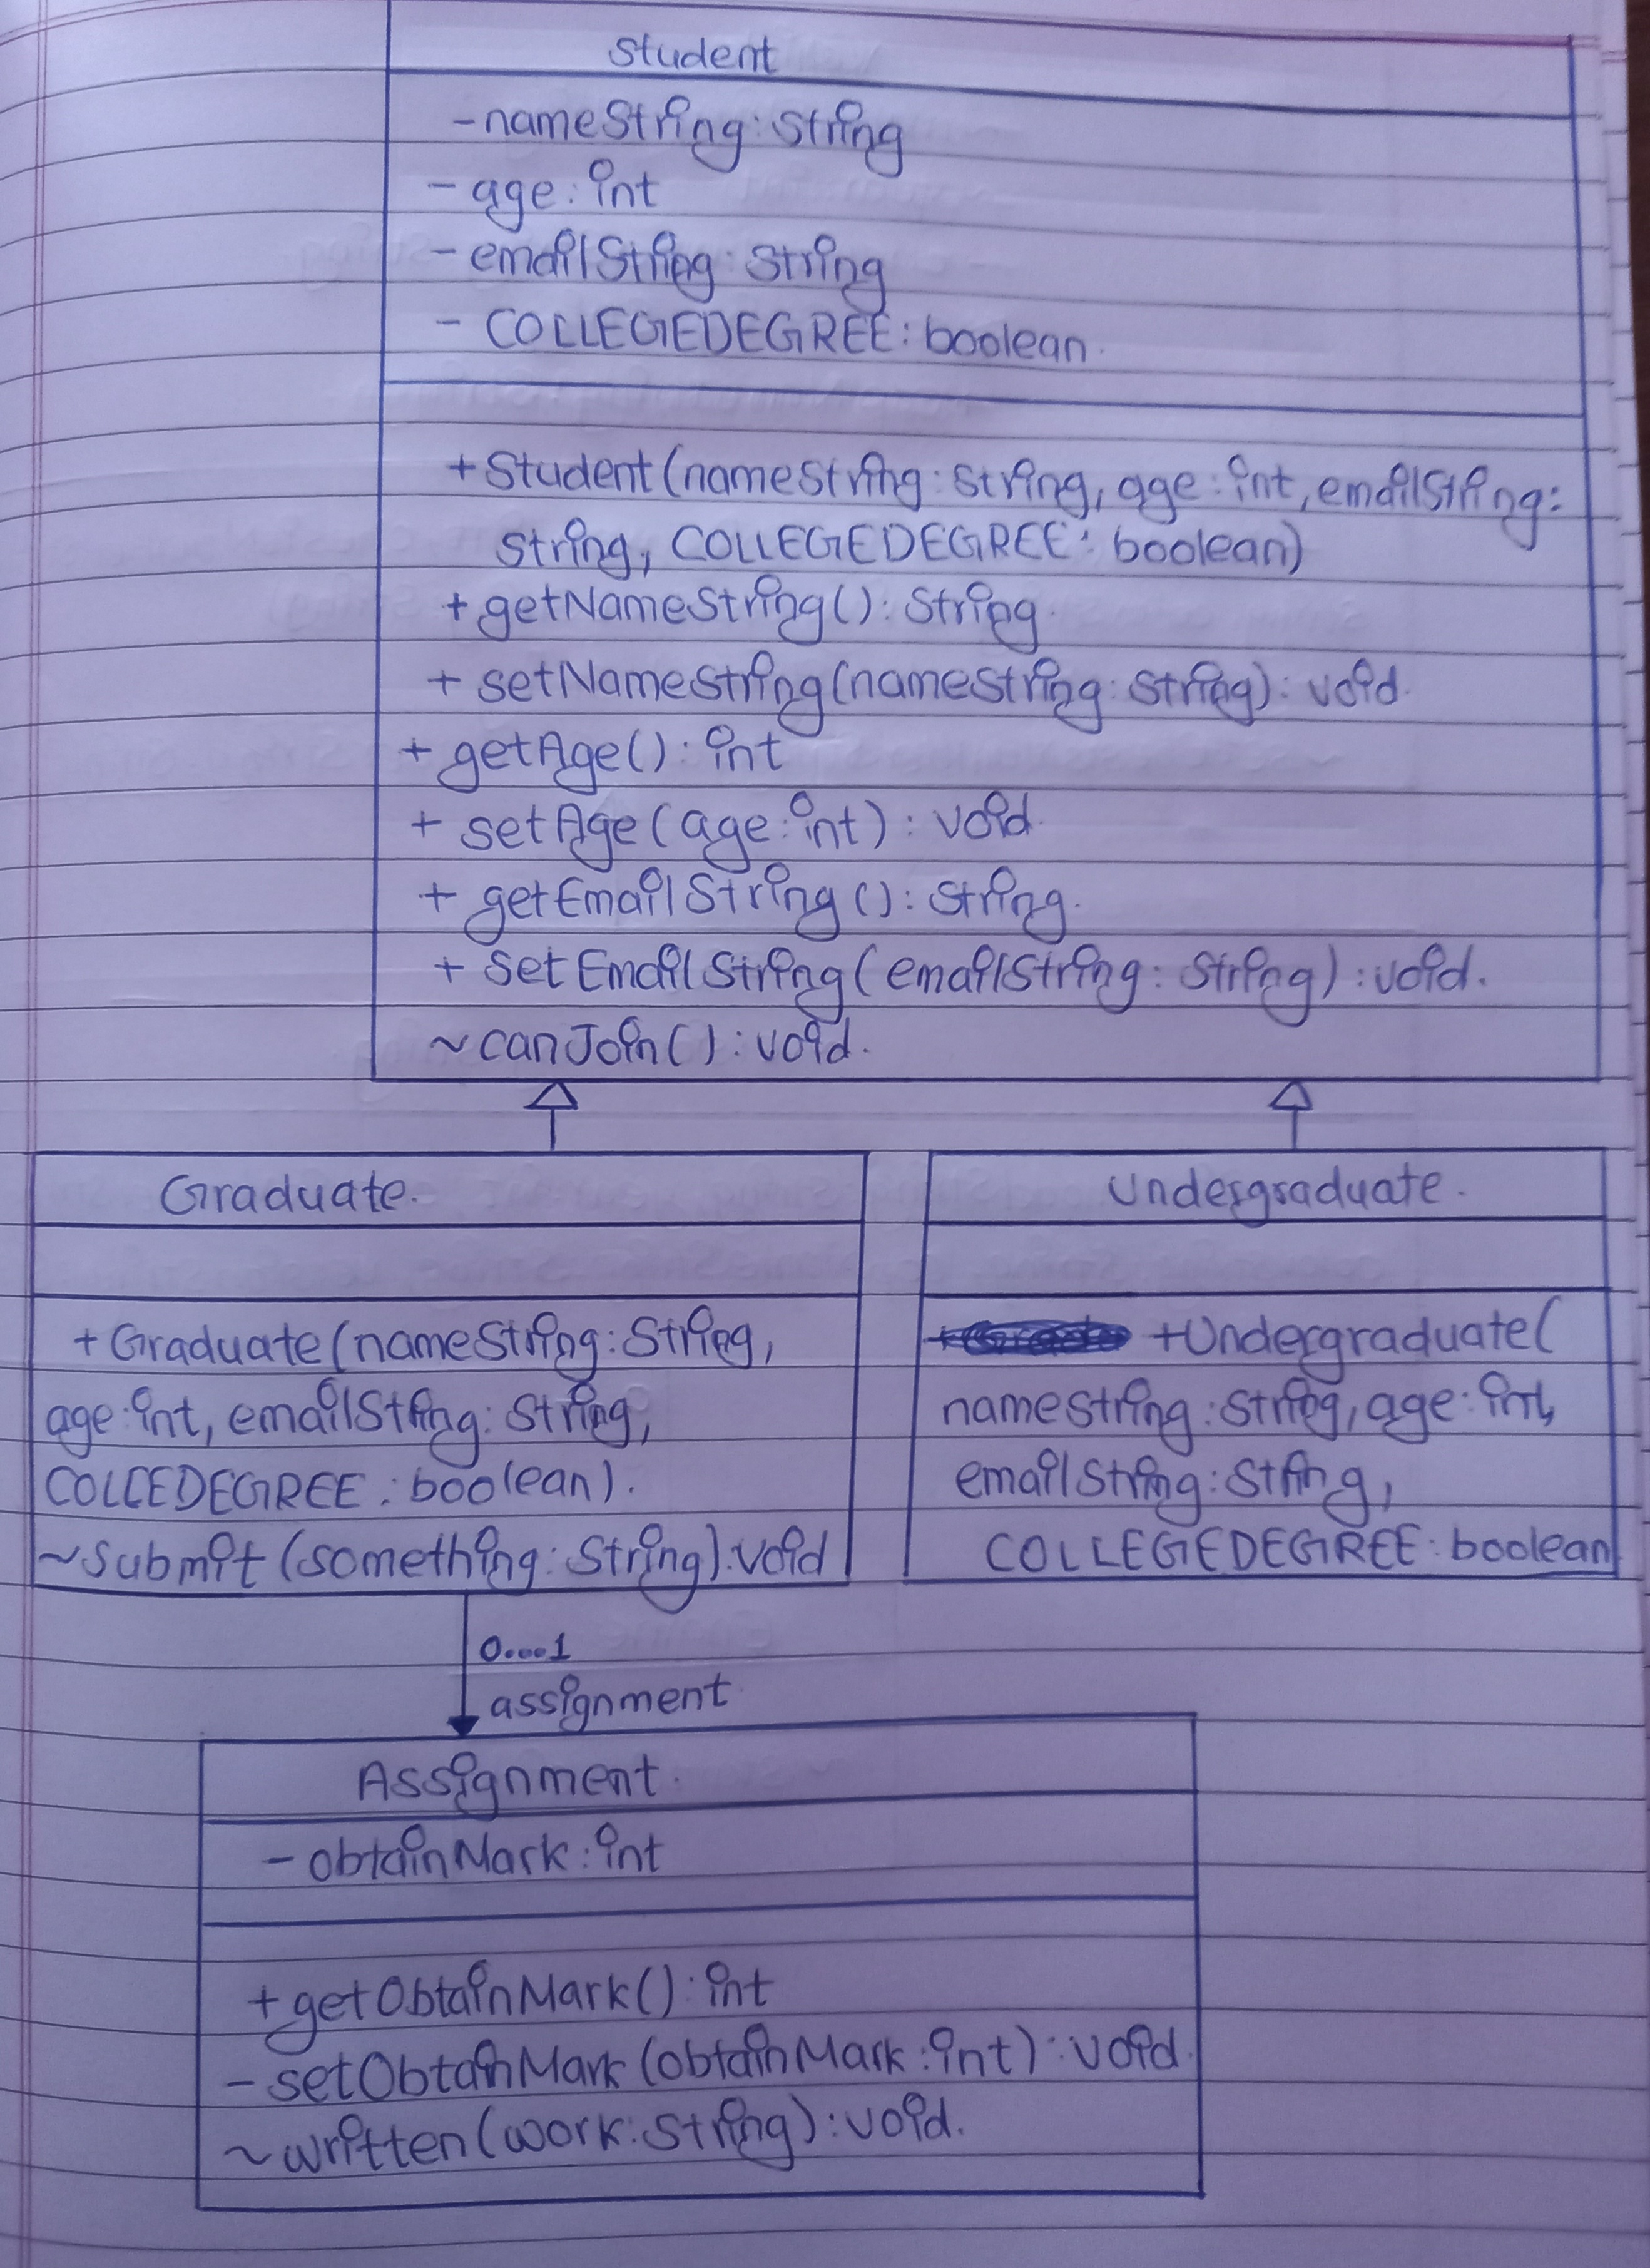 Student
-nameString: String
- age: int
- emailString: String
- COLLEGEDEGREE: boolean.
+Student(nameString: String, age: int, emailString:
String, COLLEGEDEGREE: boolean)
+getNameString(): String.
+ setNameString(nameString: String): void.
+ getAge(): int
+ setAge(age: int): void.
+ getEmailString(): String.
+ setEmailString(emailString: String): void.
~canJoin(): void.
Graduate.
+Graduate(nameString: String,
age: int, emailString: String,
COLLEDEGREE: boolean).
~Submit(something: String): void
Undergraduate.
+Undergraduate(
nameString: String, age: int,
emailString: String,
COLLEGEDEGREE: boolean
0....1
assignment
Assignment.
- obtainMark: int
+getObtainMark(): int
- setObtainMark(obtainMark: int): void.
~written(work: String): void.